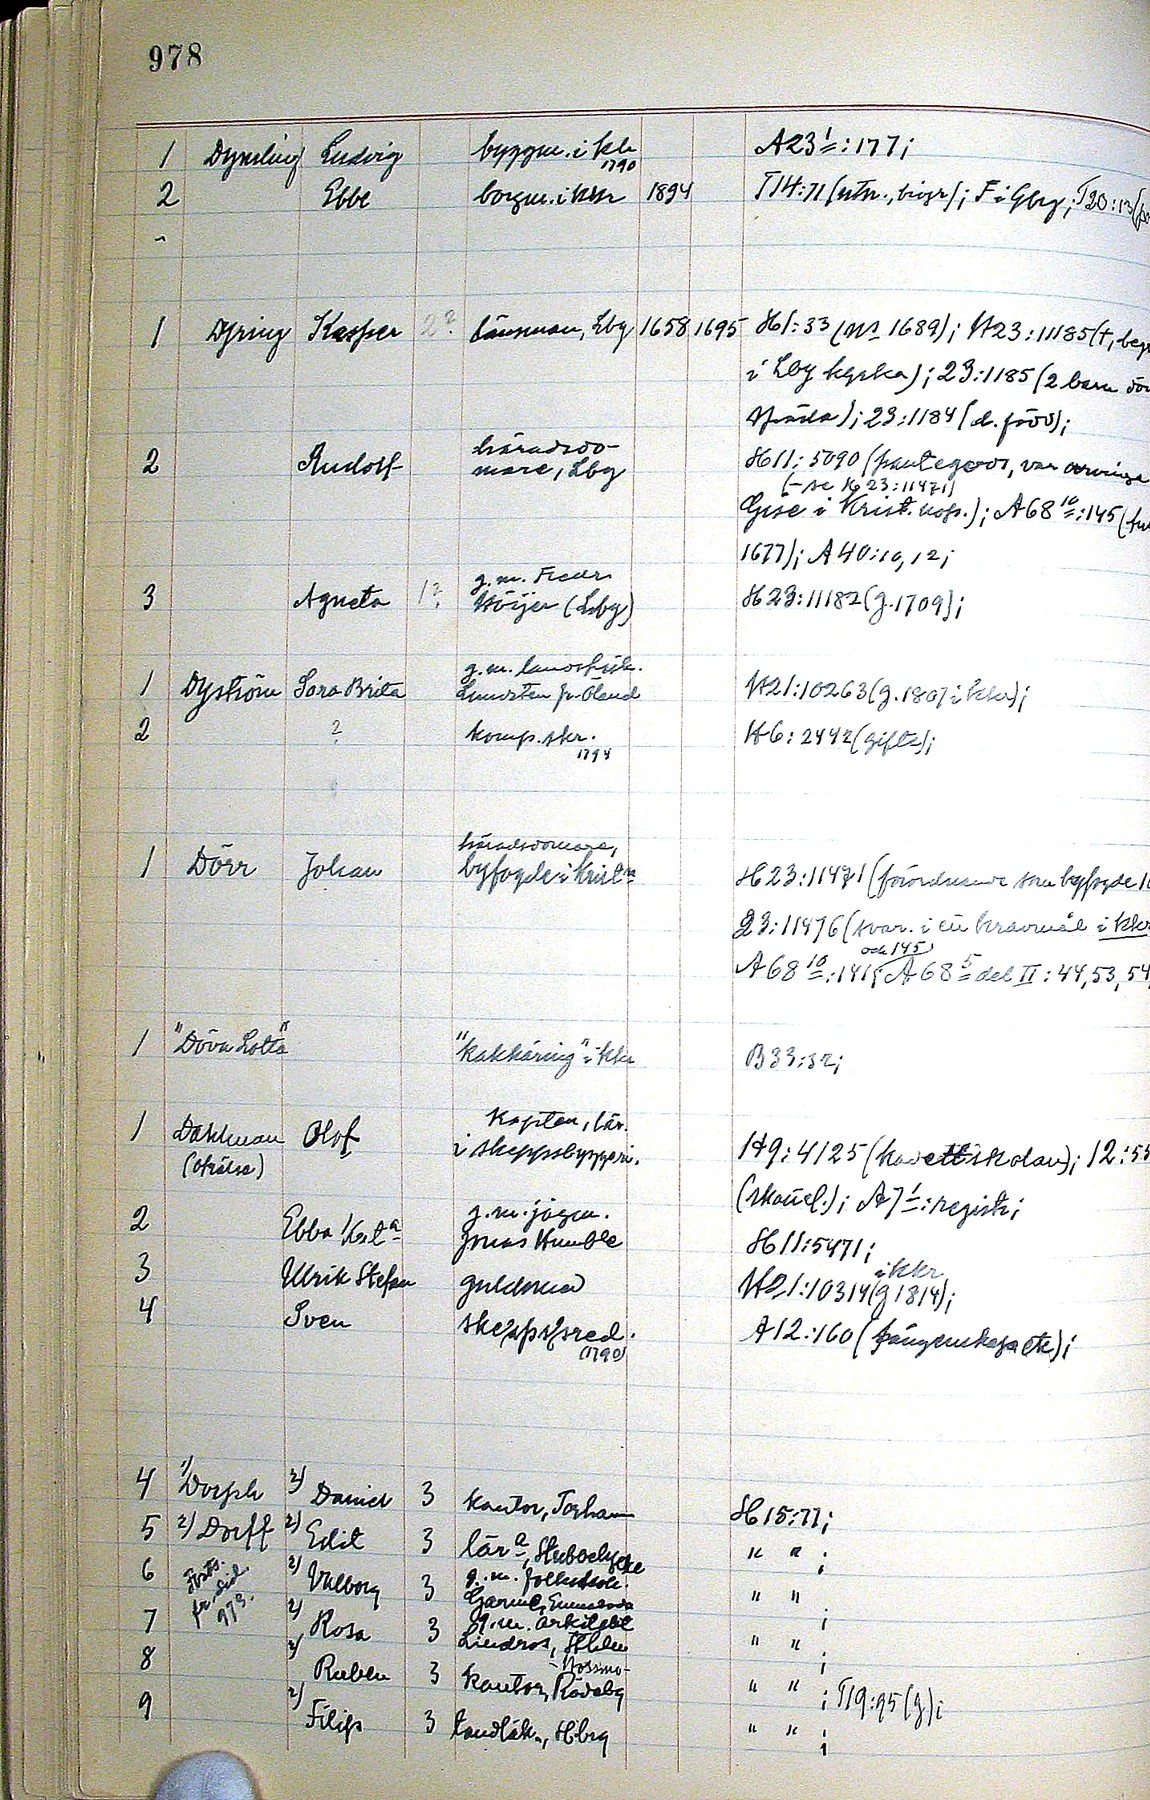 978
1 Dymling Ludvig byggm. i kkr 1790 A23 1:177;
2 Ebbe borgm. i kkr 1894 T14:71 (utn., biogr); F i Gbg; T20:13
1 Dyring Kasper 2? länsman, Lby 1658 1695 H1:33 (ns 1689); H23:11185 (†, begr
i Lby kyrka); 23:1185 (2 barn dör
späda); 23:1184 (d. föds);
2 Rudolf häradsdo-
mare, Lby H11:5090 (
(- se H 23:11471)
Gise i Krist. hofs.); A68 10:145
1677); A40:10, 12;
3 Agneta 1? g.m. Fredr.
Höijer (Lby) H23:11182 (g. 1709);
1 Dyström Sara Brita g.m. landsfisk.
Lundsten fr. Öland H21:10263 (g. 1807 i kkr);
2 ? komp. skr. 1794 H6:2442 (gifte);
1 Dörr Johan häradsdomare,
byfogde i Krist:a H23:11471 (förordnande som byfogde
23:11476 (svar. i en kravmål i kkr
och 145
A68 10:141; A68 5 del II:44, 53, 54,
1 "Döva Lotta" "Kakkäring" i kkr B33:32;
1 Dahlman Olof kapten, lär.
(ofrälse) i skeppsbyggeri. H9:4125 (kadettskolan); 12:55
A7 1:registr;
2 Ebba Krist:a g.m. jägm.
Jonas Humble H11:5471;
3 Ulrik Stefan guldsmed i kkr
H21:10314 (g 1814);
4 Sven skeppspred. (1790) A12:160 (fångenskap etc);
4 1) Dorph 2) Daniel 3 kantor, Torhamn H15:77;
5 2) Dorff 2) Edit 3 lär:a, " " ;
6 Forts. fr. sid. 973. 2) Valborg 3 g.m. folkskol. " " ;
7 2) Rosa 3 g.m. arkitekt
Lindros, Sthlm " " ;
8 2) Ruben 3 kantor, Rödeby " " ; T19:95 (g);
9 2) Filip 3 tandläk., Hbrg " " ;